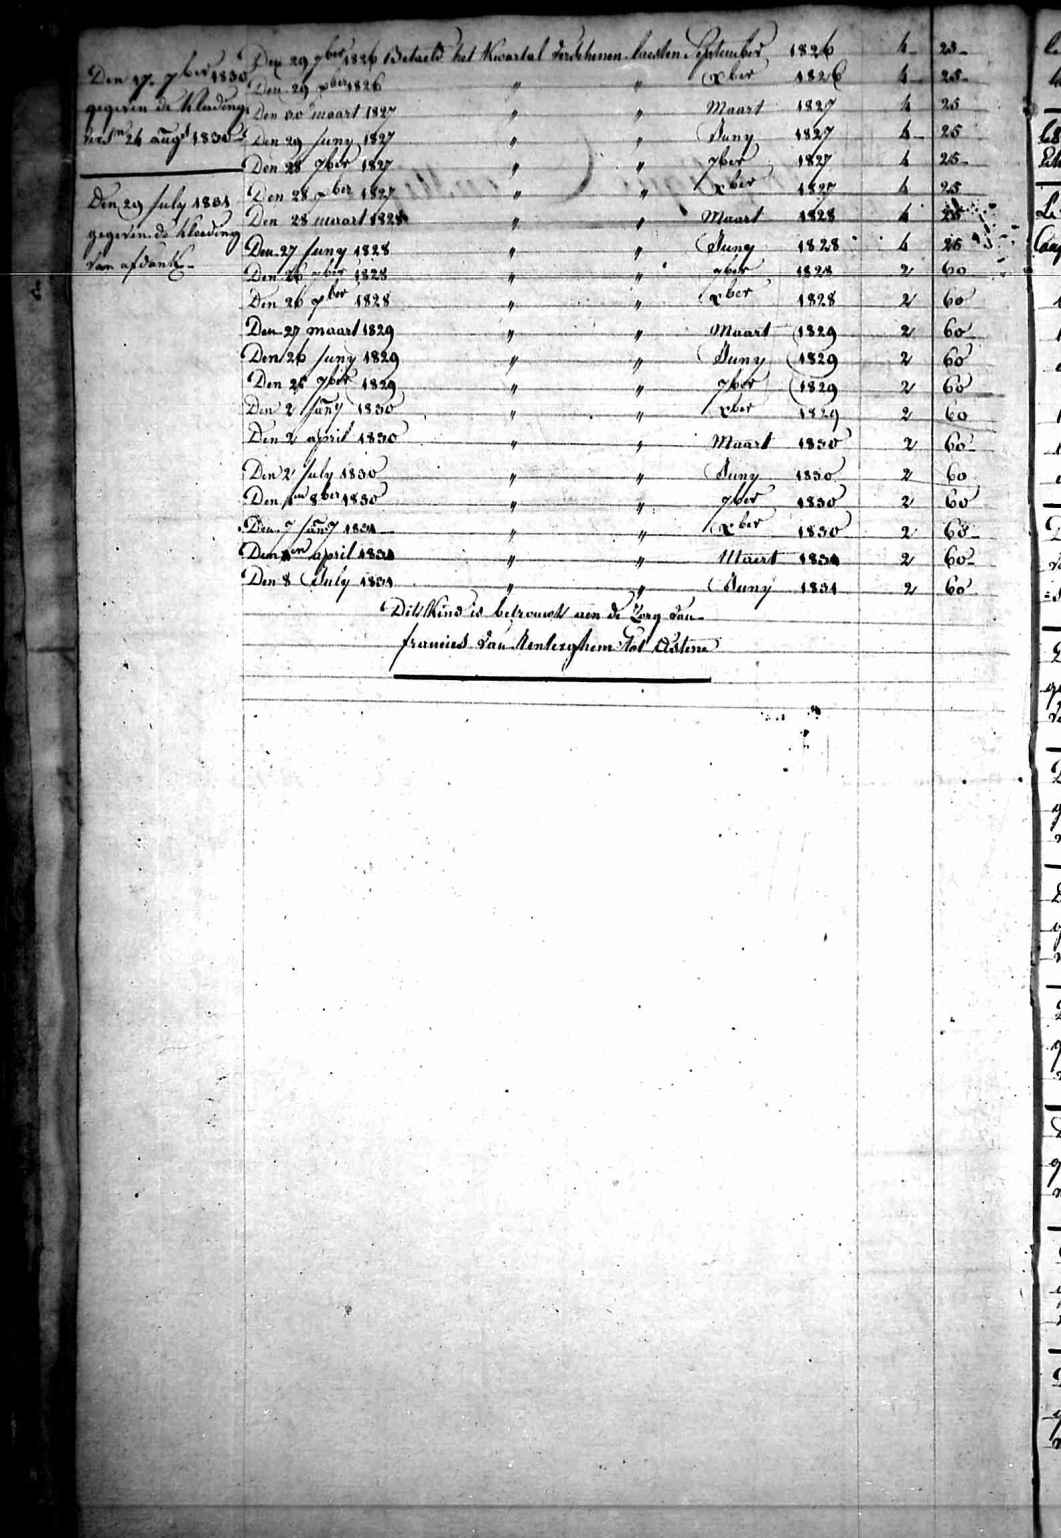 Den 17. 7ber 1830
gegeven de Kleeding
24 augt 1830
Den 29 July 1831
gegeven de Kleeding
van afdank
Den 29 7ber 1826 Betaeld het Kwartal verschenen laesten September 1826 4 25
Den 29 xber 1826 " " xber 1826 4 25
Den 30 maart 1827 " " Maart 1827 4 25
Den 29 Juny 1827 " " Juny 1827 4 25
Den 28 7ber 1827 " " 7ber 1827 4 25
Den 28 xber 1827 " " xber 1827 4 25
Den 28 maart 1828 " " Maart 1828 4 25
Den 27 Juny 1828 " " Juny 1828 4 25
Den 26 7ber 1828 " " 7ber 1828 2 60
Den 26 xber 1828 " " xber 1828 2 60
Den 27 maart 1829 " " Maart 1829 2 60
Den 26 Juny 1829 " " Juny 1829 2 60
Den 25 7ber 1829 " " 7ber 1829 2 60
Den 2 Jany 1830 " " xber 1829 2 60
Den 2 april 1830 " " Maart 1830 2 60
Den 2 July 1830 " " Juny 1830 2 60
Den 1en 8ber 1830 " " 7ber 1830 2 60
Den 7 Jany 1831 " " xber 1830 2 60
Den 1en april 1831 " " Maart 1831 2 60
Den 8 July 1831 " " Juny 1831 2 60
Dit Kind is betrouwt aen de Zorg van
francies van Renterghem tot Astene